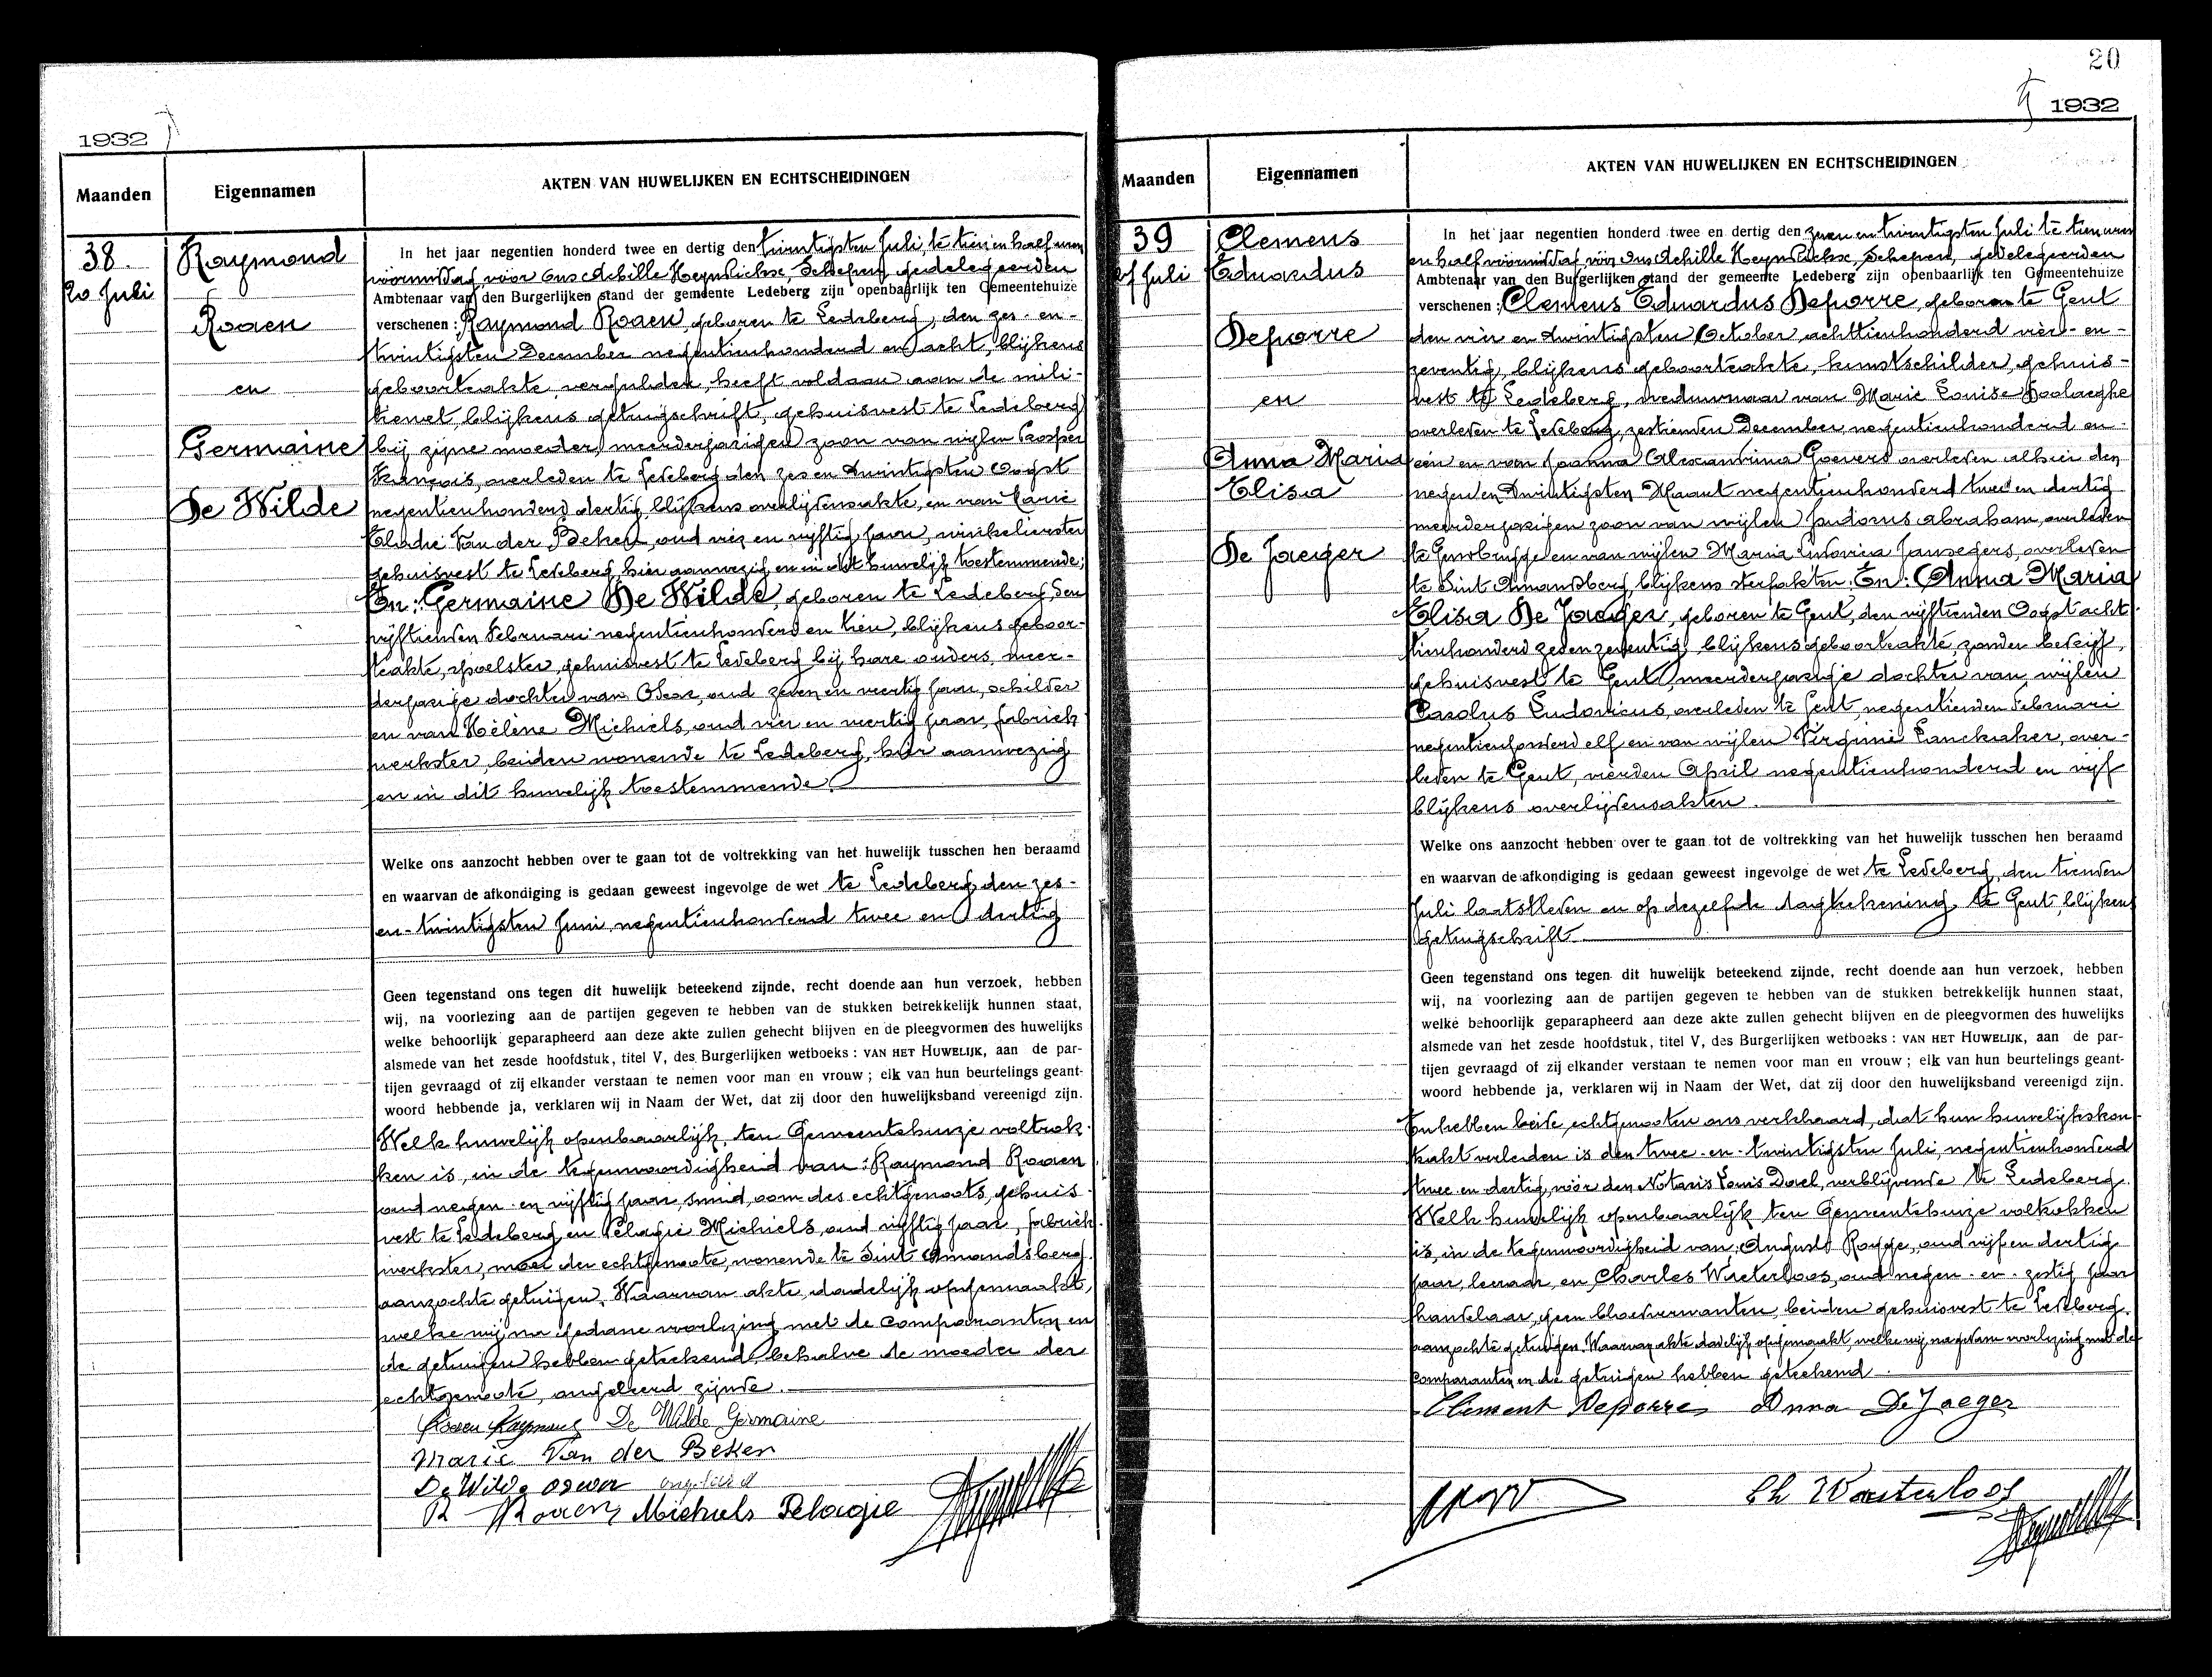 1932
Maanden
Eigennamen
AKTEN VAN HUWELIJKEN EN ECHTSCHEIDINGEN
38.
20 Juli
Raymond
Roaen
en
Germaine
De Wilde
In het jaar negentien honderd twee en dertig den twintigsten Juli, te tien en half uren
voormiddag vóór ons Achille Heyndrickx, Schepen, gedelegeerden
Ambtenaar van den Burgerlijken stand der gemeente Ledeberg zijn openbaarlijk ten Gemeentehuize
verschenen: Raymond Roaen, geboren te Ledeberg, den zes-en-
twintigsten December negentienhonderd en acht, blijkens
geboorteakte, vergulder, heeft voldaan aan de mili-
tiewet, blijkens getuigschrift, gehuisvest te Ledeberg
bij zijne moeder, meerderjarigen zoon van wijlen Prosper
François, overleden te Ledeberg den zes en twintigsten Oogst
negentienhonderd dertig, blijkens overlijdensakte, en van Marie
Elodie Van der Beken, oud en vijftig jaar, winkelierster
gehuisvest te Ledeberg, hier aanwezig en in dit huwelijk toestemmende;
En: Germaine De Wilde, geboren te Ledeberg, den
vijftienden Februari negentienhonderd en tien, blijkens geboor-
teakte, spoelster, gehuisvest te Ledeberg bij hare ouders, meer-
derjarige dochter van Oscar, oud zeven en veertig jaar, schilder
en van Hélène Michiels, oud vier en veertig jaar, fabriek-
werkster, beiden wonende te Ledeberg, hier aanwezig
en in dit huwelijk toestemmende.
Welke ons aanzocht hebben over te gaan tot de voltrekking van het huwelijk tusschen hen beraamd
en waarvan de afkondiging is gedaan geweest ingevolge de wet te Ledeberg, den zes-
en-twintigsten Juni, negentienhonderd twee en dertig
Geen tegenstand ons tegen dit huwelijk beteekend zijnde, recht doende aan hun verzoek, hebben
wij, na voorlezing aan de partijen gegeven te hebben van de stukken betrekkelijk hunnen staat,
welke behoorlijk geparapheerd aan deze akte zullen gehecht blijven en de pleegvormen des huwelijks
alsmede van het zesde hoofdstuk, titel V, des Burgerlijken wetboeks: VAN HET HUWELIJK, aan de par-
tijen gevraagd of zij elkander verstaan te nemen voor man en vrouw; elk van hun beurtelings geant-
woord hebbende ja, verklaren wij in Naam der Wet, dat zij door den huwelijksband vereenigd zijn.
Welk huwelijk openbaarlijk ten Gemeentehuize voltrok-
ken is, in de tegenwoordigheid van: Raymond Roaen
oud negen-en vijftig jaar, smid, oom des echtgenoots, gehuis-
vest te Ledeberg, en Pelagie Michiels, oud vijftig jaar, fabriek-
werkster, moei der echtgenoote, wonende te Sint Amandsberg
aanzochte getuigen. Waarvan akte, dadelijk opgemaakt,
welke wij na gedane voorlezing met de comparanten en
de getuigen hebben geteekend, behalve de moeder der
echtgenoote, ongeleerd zijnde.
Roaen Raymond De Wilde Germaine
Marie Van der Beken
De Wilde oscar ongeleerd
R Roaen Michiels Pelagie
20
1932
Maanden
Eigennamen
AKTEN VAN HUWELIJKEN EN ECHTSCHEIDINGEN
39
27 Juli
Clemens
Eduardus
Deporre
en
Anna Maria
Elisa
De Jaeger
In het jaar negentien honderd twee en dertig den zeven en twintigsten Juli te tien uren
en half voormiddag vóór Ons Achille Heyndrickx, Schepen, gedelegeerden
Ambtenaar van den Burgerlijken stand der gemeente Ledeberg zijn openbaarlijk ten Gemeentehuize
verschenen: Clemens Eduardus Deporre, geboren te Gent
den vier en twintigsten October achttienhonderd vier-en-
zeventig, blijkens geboorteakte, kunstschilder, gehuis-
vest te Ledeberg, weduwnaar van Marie Louise
overleden te Ledeberg, zestienden December negentienhonderd en
een en van Joanna Alexandrina Goevers overleden alhier den
negen en twintigsten Maart negentienhonderd twee en dertig
meerderjarigen zoon van wijlen Judocus Abraham, overleden
te Gentbrugge en van wijlen Maria Ludovica Jansegers, overleden
te Sint Amandsberg, blijkens sterfakten. En: Anna Maria
Elisa De Jaeger, geboren te Gent, den vijftienden Oogst acht-
tienhonderd zeven zeventig, blijkens geboorteakte, zonder bedrijf,
gehuisvest te Gent, meerderjarige dochter van wijlen
Carolus Ludovicus, overleden te Gent, negentienden Februari
negentienhonderd elf en van wijlen Virginie Lanckraker, over-
leden te Gent, vierden April negentienhonderd en vijf
blijkens overlijdensakten.
Welke ons aanzocht hebben over te gaan tot de voltrekking van het huwelijk tusschen hen beraamd
en waarvan de afkondiging is gedaan geweest ingevolge de wet te Ledeberg, den tienden
Juli laatstleden en op dezelfde dagteekening te Gent, blijkens
getuigschrift
Geen tegenstand ons tegen dit huwelijk beteekend zijnde, recht doende aan hun verzoek, hebben
wij, na voorlezing aan de partijen gegeven te hebben van de stukken betrekkelijk hunnen staat,
welke behoorlijk geparapheerd aan deze akte zullen gehecht blijven en de pleegvormen des huwelijks
alsmede van het zesde hoofdstuk, titel V, des Burgerlijken wetboeks: VAN HET HUWELIJK, aan de par-
tijen gevraagd of zij elkander verstaan te nemen voor man en vrouw; elk van hun beurtelings geant-
woord hebbende ja, verklaren wij in Naam der Wet, dat zij door den huwelijksband vereenigd zijn.
En hebben beide echtgenooten ons verklaard, dat hun huwelijkskon-
trakt verleden is den twee-en-twintigsten Juli, negentienhonderd
twee en dertig, vóór den Notaris Louis Dael, verblijvende te Ledeberg.
Welk huwelijk openbaarlijk ten Gemeentehuize voltrokken
is, in de tegenwoordigheid van: August Rogge, oud vijf en dertig
jaar, leeraar, en Charles Waeterloos, oud negen-en-zestig jaar
handelaar, geen bloedverwanten, beiden gehuisvest te Ledeberg,
aanzochte getuigen. Waarvan akte dadelijk opgemaakt, welke wij na gedane voorlezing met de
comparanten en de getuigen hebben geteekend.
Clement Deporre Anna De Jaeger
Ch Waeterloos